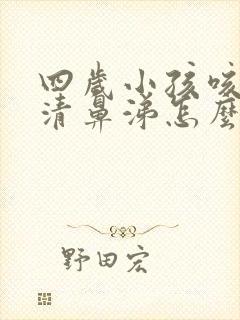 四歲小孩咳
清鼻涕怎麼
野田宏